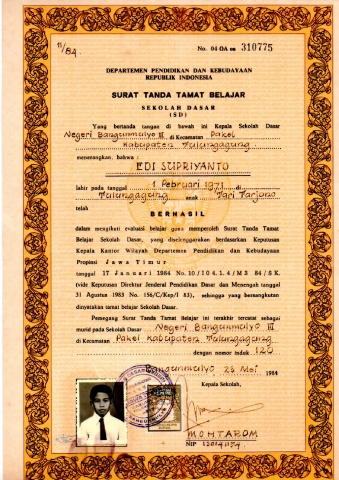 11/84.
No. 04 OA oa 310775
DEPARTEMEN PENDIDIKAN DAN KEBUDAYAAN
REPUBLIK INDONESIA
SURAT TANDA TAMAT BELAJAR
SEKOLAH DASAR
(SD)
Yang bertanda tangan di bawah ini Kepala Sekolah Dasar
Negeri Bangunmulyo III di Kecamatan Pakel
Kabupaten Tulungagung
menerangkan bahwa :
EDI SUPRIYANTO
lahir pada tanggal 1 Februari 1971 di
Tulungagung anak Tari Tarjuno
telah
BERHASIL
dalam mengikuti evaluasi belajar guna memperoleh Surat Tanda Tamat
Belajar Sekolah Dasar, yang diselenggarakan berdasarkan Keputusan
Kepala Kantor Wilayah Departemen Pendidikan dan Kebudayaan
Propinsi Jawa Timur
tanggal 17 Januari 1984 No. 10/104.1.4/M3 84/SK.
(vide Keputusan Direktur Jenderal Pendidikan Dasar dan Menengah tanggal
31 Agustus 1983 No. 156/C/Kep/I 83), sehingga yang bersangkutan
dinyatakan tamat belajar Sekolah Dasar.
Pemegang Surat Tanda Tamat Belajar ini terakhir tercatat sebagai
murid pada Sekolah Dasar Negeri Bangunmulyo III
di Kecamatan Pakel Kabupaten Tulungagung
dengan nomor induk 120
Bangunmulyo, 25 Mei 1984
Kepala Sekolah,
MOHTAROM
NIP